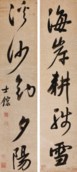 海岸耕殘雪
溪沙釣夕陽
士信